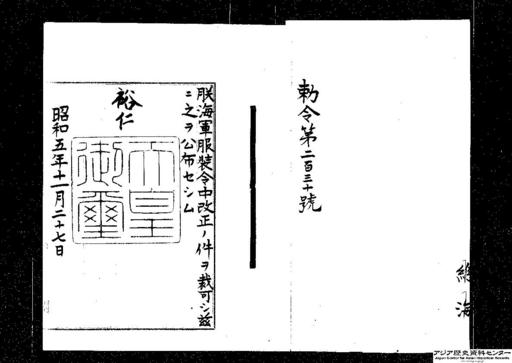 勅令第二百三十號
總
海
朕海軍服裝令中改正ノ件ヲ裁可シ茲
ニ之ヲ公布セシム
裕仁
天皇
御璽
昭和五年十一月二十七日
アジア歴史資料センター
Japan Center for Asian Historical Records